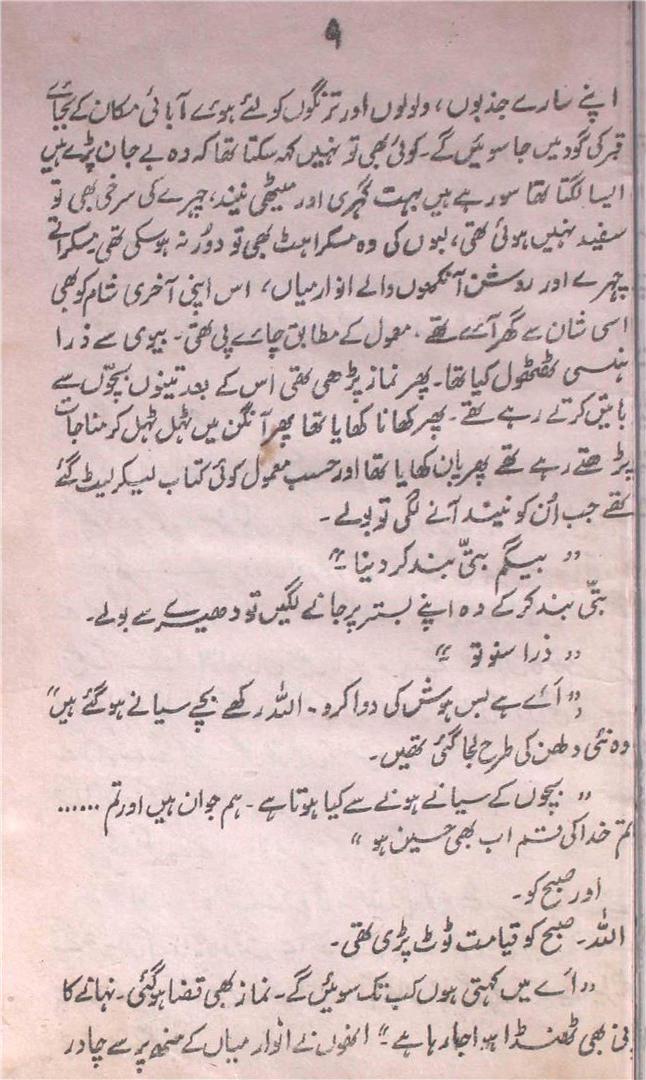 ۹
اپنے سارے جذبوں، ولولوں اور ترنگوں کو لئے ہوئے آبائی مکان کے بجائے
قبر کی گود میں جا سوئیں گے۔ کوئی بھی تو نہیں کہہ سکتا تھا کہ وہ بے جان پڑے ہیں
ایسا لگتا تھا سو رہے ہیں بہت گہری اور میٹھی نیند، چہرے کی سرخی بھی تو
سفید نہیں ہوئی تھی، لبوں کی وہ مسکراہٹ بھی تو دور نہ ہوسکی تھی مسکراتے
چہرے اور روشن آنکھوں والے انوار میاں، اس اپنی آخری شام کو بھی
اسی شان سے گھر آئے تھے۔ معمول کے مطابق چائے پی تھی۔ بیوی سے ذرا
ہنسی ٹھٹھول کیا تھا۔ پھر نماز پڑھی تھی اس کے بعد تینوں بچّوں سے
باتیں کرتے رہے تھے۔ پھر کھانا کھایا تھا پھر آنگن میں ٹہل ٹہل کر مناجات
پڑھتے رہے تھے پھر پان کھایا تھا اور حسب معمول کوئی کتاب لیکر لیٹ گئے
تھے جب اُن کو نیند آنے لگی تو بولے۔
”بیگم بتّی بند کر دینا“
بتّی بند کر کے وہ اپنے بستر پر جانے لگیں تو دھیرے سے بولے۔
”ذرا سنو تو“
”اَئے ہے بس ہوش کی دوا کرو۔ اللہ رکھے بچے سیانے ہوگئے ہیں“
وہ نئی دلھن کی طرح لجا گئی تھیں۔
”بچوں کے سیانے ہونے سے کیا ہوتا ہے۔ ہم جوان ہیں اور تم ......
تم خدا کی قسم اب بھی حسین ہو“
اور صبح کو۔
اللہ۔ صبح کو قیامت ٹوٹ پڑی تھی۔
”اَے میں کہتی ہوں کب تک سوئیں گے۔ نماز بھی قضا ہوگئی۔ نہانے کا
نی بھی ٹھنڈا ہوا جا رہا ہے“ انھوں نے انوار میاں کے منھ پر سے چادر